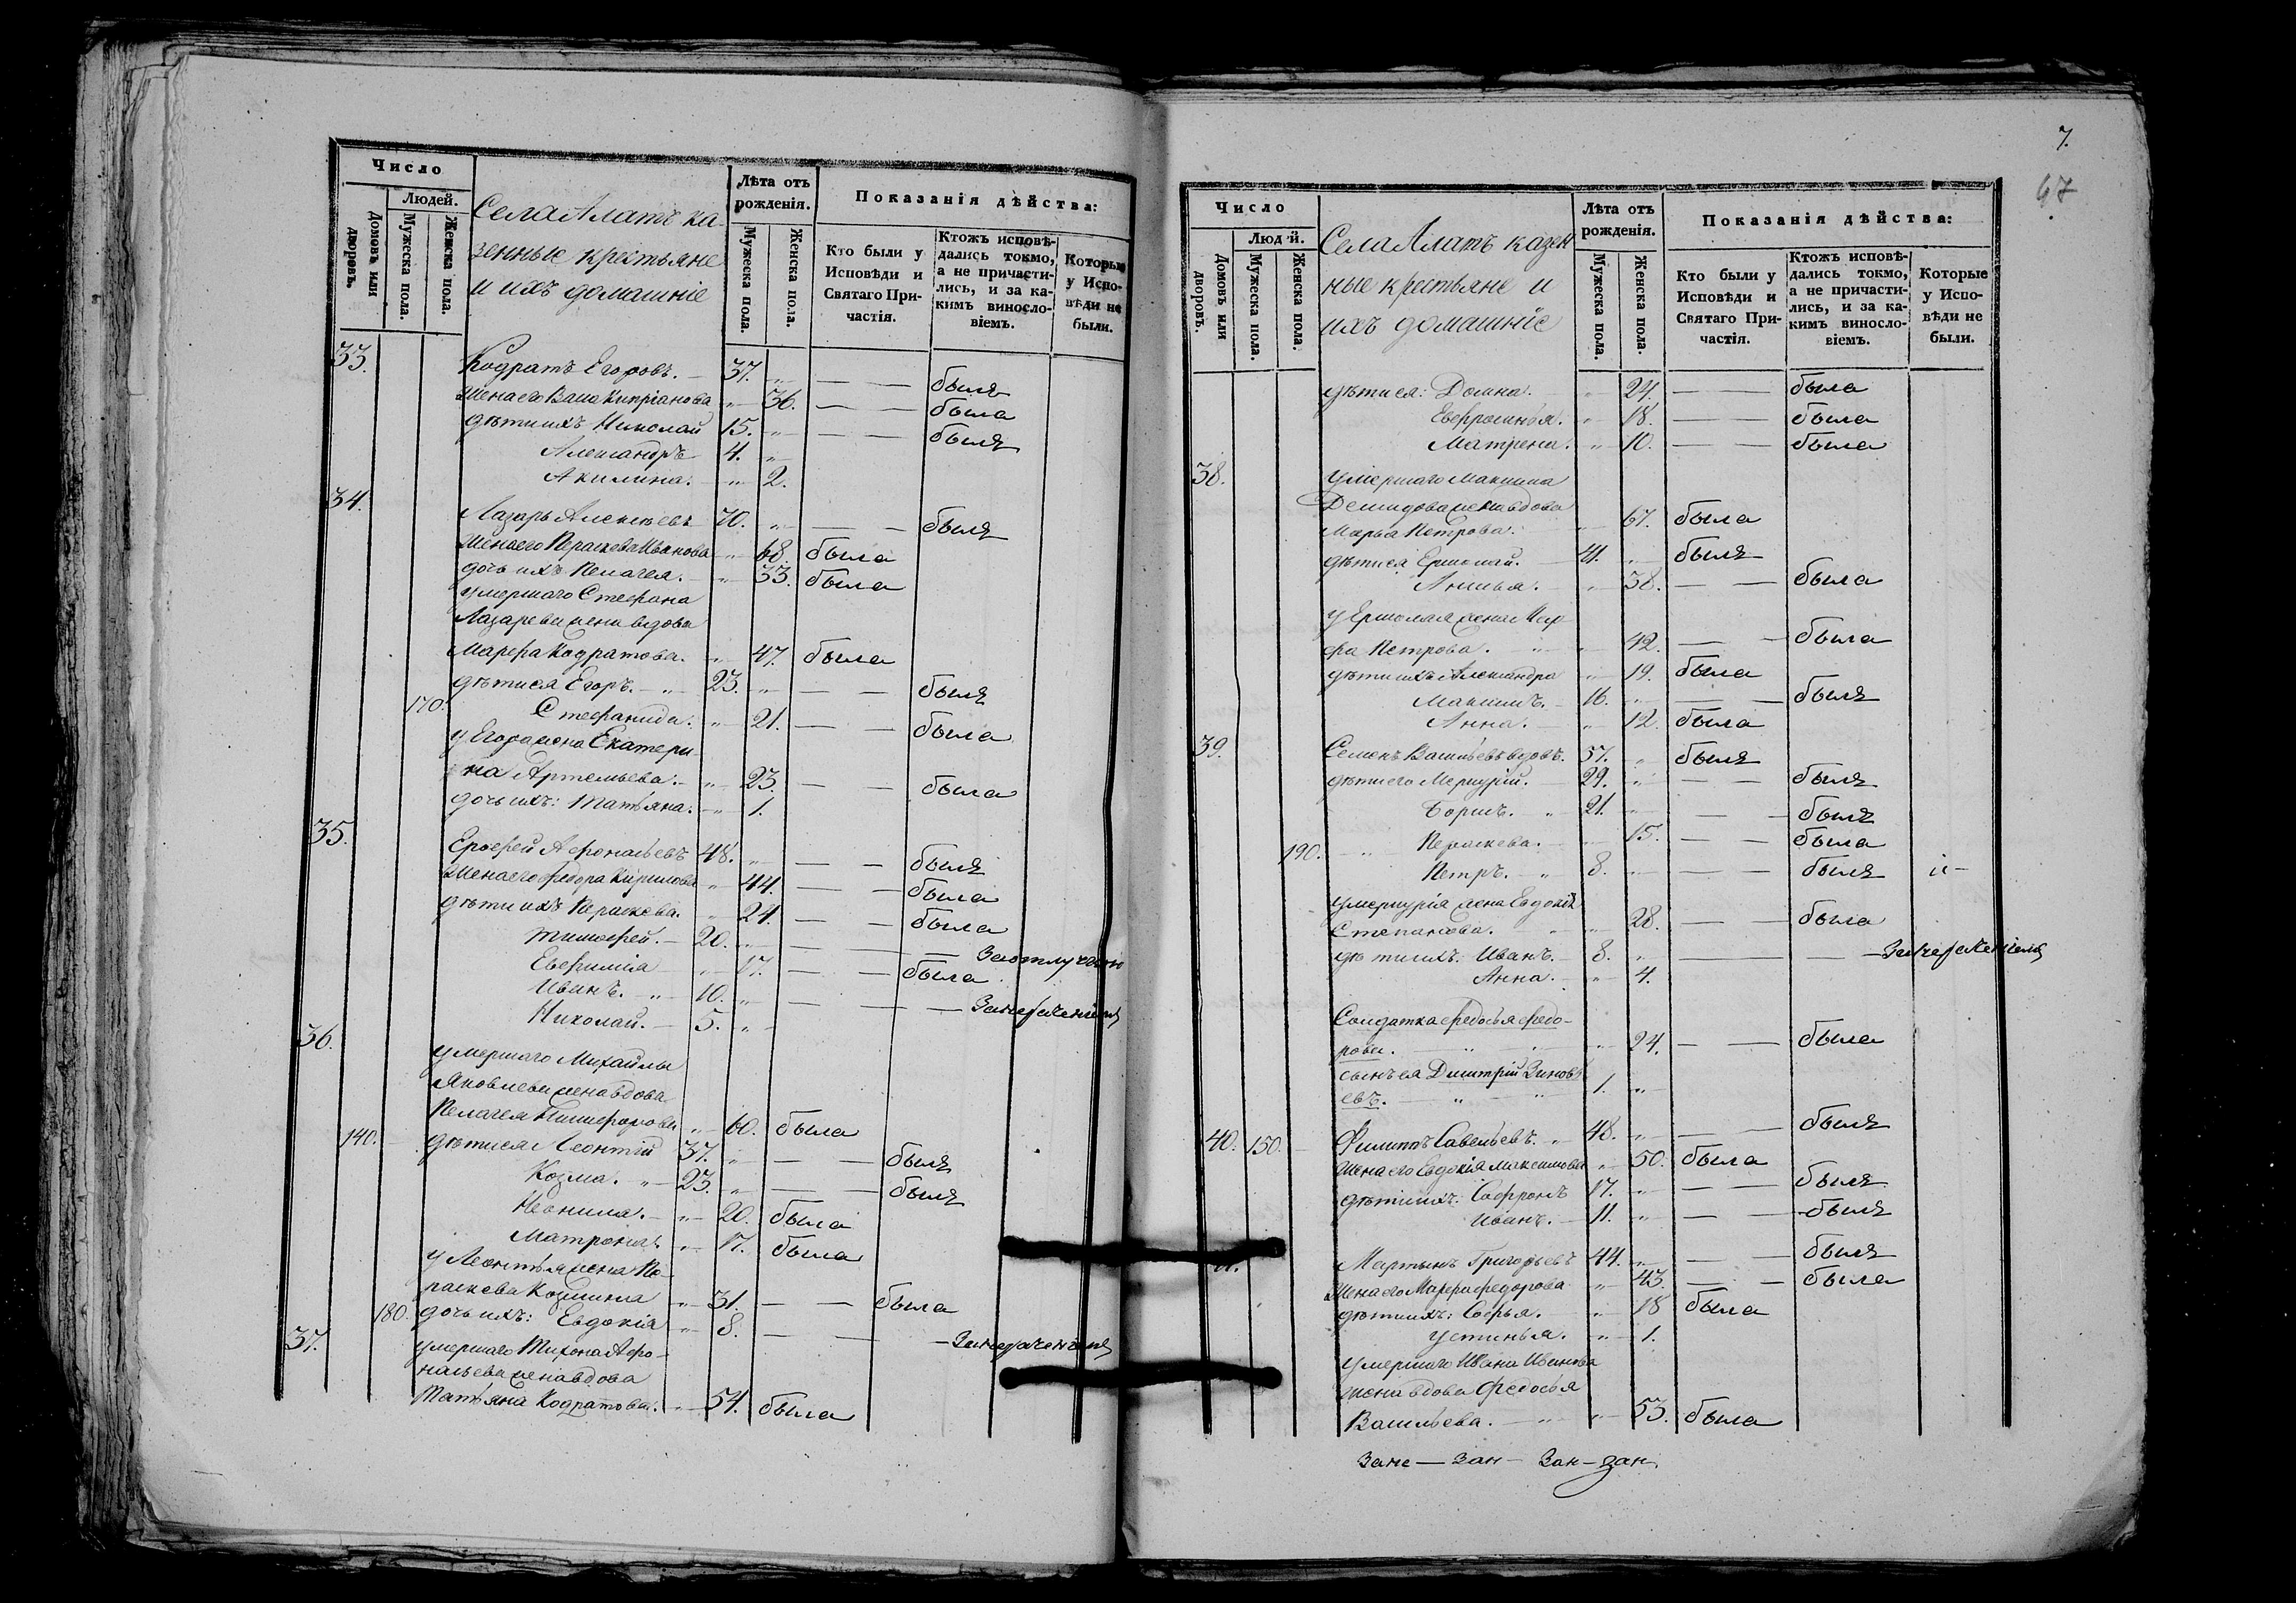 Число
Людей.
Домовъ или дворовъ.
Мужеска пола.
Женска пола.
Села Алатъ ка-
зенные крестьяне
и ихъ домашніе
Лѣта отъ рожденія.
Мужеска пола.
Женска пола.
Показанія дѣйства:
Кто были у Исповѣди и Святаго При-частія.
Ктожъ исповѣ-дались токмо, а не причасти-лись, и за ка-кимъ виносло-віемъ.
Которые у Испо-вѣди не были.
33. Кодратъ Егоровъ. 37. „ — — былъ
Жена его Васса Кипріанова „ 36. — — была
дѣти ихъ Николай 15. „ — — былъ
Александръ 4. „
Акилина. „ 2.
34. Лазарь Алексѣевъ 70. „ — — былъ
Жена его Параскева Иванова „ 68. была
дочь ихъ Пелагея. „ 33. была
умершаго Стефана
Лазарева жена вдова
Марфа Кодратова. „ 47. была
дѣти ея Егоръ. „ 23. „ — — былъ
170. Стефанида. „ 21. — — была
у Егора жена Екатери-
на Артемьева. „ 23. — — была
дочь ихъ: Татьяна. „ 1.
35. Ерофей Афонасьевъ 48. „ — — былъ
Жена его Федора Кирилова „ 44. — — была
дѣти ихъ Параскева. „ 24. — — была
Тимофей. 20. „ — — — За отлучкою
Евфимія „ 17. — — была
Иванъ. „ 10. „ — — — За нерачениемъ
Николай. 5. „
36. умершаго Михайлы
Яковлева жена вдова
Пелагея Никифорова „ 60. была
140. дѣти ея Леонтій 37. „ — — былъ
Козма. „ 23. „ — — былъ
Неонила. „ 20. была
Матрона. „ 17. была
у Леонтья жена Па-
раскева Козмина „ 31. — — была
180. дочь ихъ: Евдокія „ 8. — — — За нерачениемъ
37. умершаго Тихона Афо-
насьева жена вдова
Татьяна Кодратова. „ 54. была
7.
67
Число
Людей.
Домовъ или дворовъ.
Мужеска пола.
Женска пола.
Села Алатъ казен
ные крестьяне и
ихъ домашніе
Лѣта отъ рожденія.
Мужеска пола.
Женска пола.
Показанія дѣйства:
Кто были у Исповѣди и Святаго При-частія.
Ктожъ исповѣ-дались токмо, а не причасти-лись, и за ка-кимъ виносло-віемъ.
Которые у Испо-вѣди не были.
дѣти ея: Домна. „ 24. — — была
Евфросинья. „ 18. — — была
Матрена. „ 10. — — была
38. умершаго Максима
Демидова жена вдова
Марья Петрова. „ 67. была
дѣти ея Ермолай. 41. „ былъ
Анисья. „ 38. — — была
у Ермолая жена Мар
фа Петрова. „ „ 42. — — была
дѣти ихъ Александра „ 19. была
Максимъ. 16. „ — — былъ
Анна. „ 12. была
39. Семенъ Васильевъ вдовъ. 57. „ былъ
дѣти его Меркурій. 29. „ — — былъ
Борисъ. „ 21. „ — — былъ
190. Параскева. „ 15. — — была
Петръ. „ 8. „ — — былъ
у Меркурія жена Евдокія
Степанова. „ 28. — — была
дѣти ихъ: Иванъ. 8. „ — — — За нерачениемъ
Анна. „ 4.
Солдатка Федосья Федо-
рова. „ „ „ 24. — — была
сынъ ея Дмитрій Зиновь
евъ. „ „ 1. „
40. 150. Филиппъ Савельевъ. „ 48. „ — — былъ
Жена его Евдокія Максимова „ 50. была
дѣти ихъ: Софронъ 17. „ — — былъ
Иванъ. 11. „ — — былъ
Мартынъ Григорьевъ 44. „ — — былъ
Жена его Марфа Федорова „ 43. — — была
дѣти ихъ: Софья. „ 18 была
Устинья. „ 1.
умершаго Ивана Иванова
жена вдова Федосья
Васильева. „ „ 53. была
Зане — Зан — Зан — зан